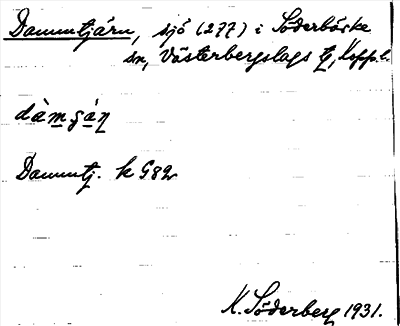 Dammtjärn, sjö (277) i Söderbärke
sn, Västerbergslags tg, Kopp.l.
dàmʂáɳ
Dammtj. k G82
K. Söderberg 1931.